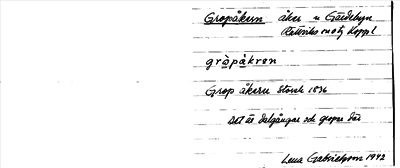 Gropåkern åker n Gärdebyn
Rättviks sn
gròpåkren
Grop åkern Storsk 1836
Det är dalgångar och gropar där
Lena Gabrielsson 1942